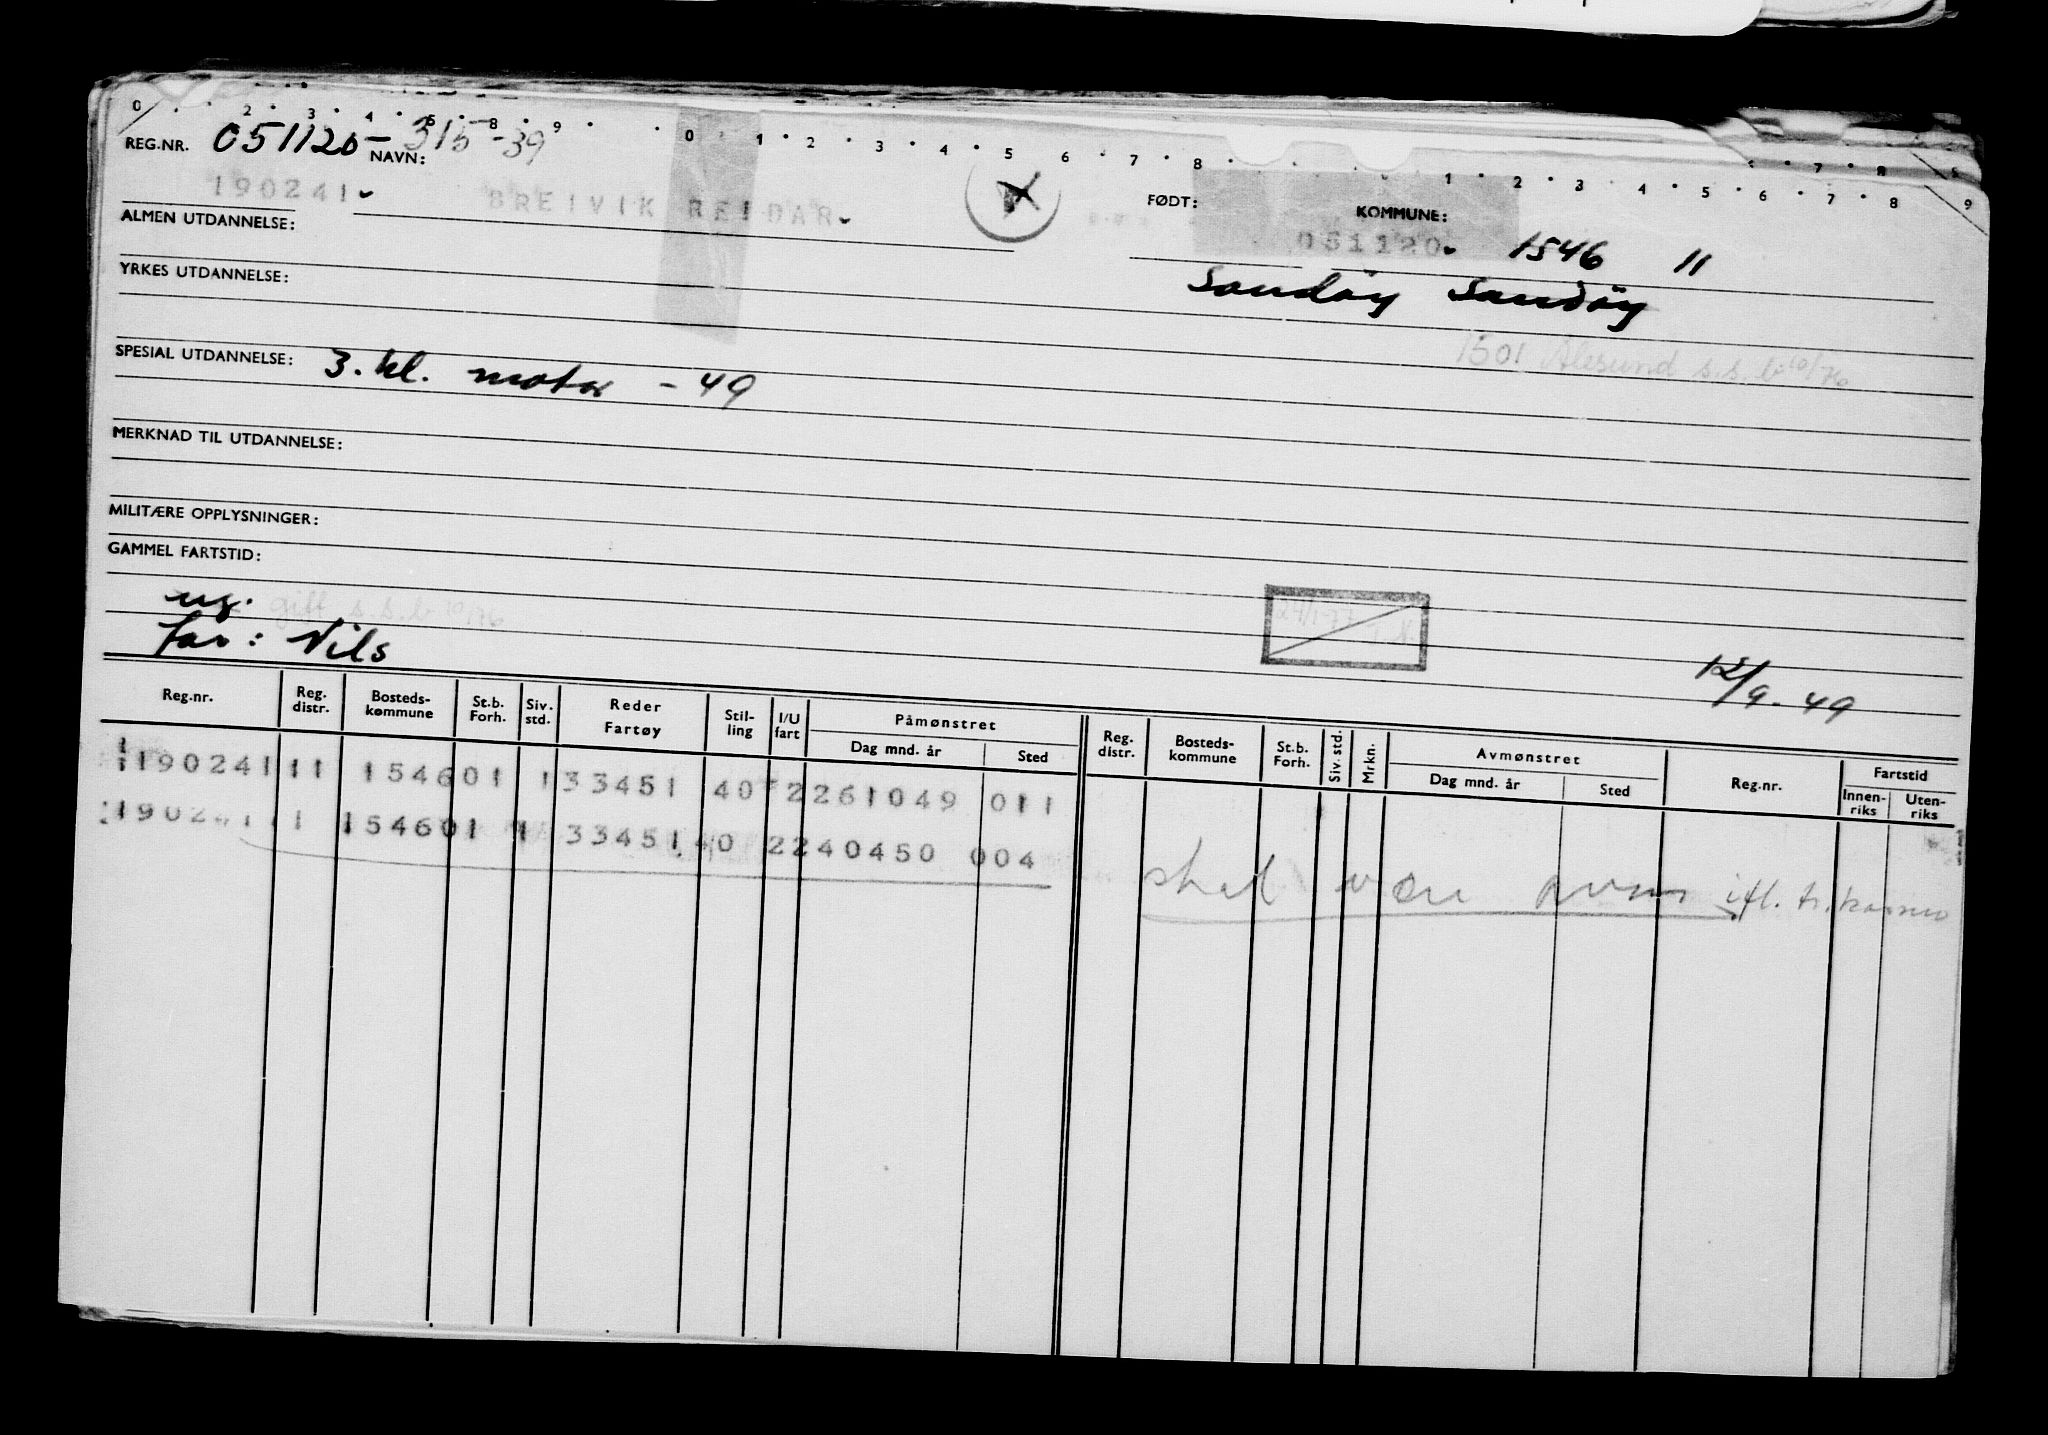 0 2 3 4 5 8 9 0 1 2 3 4 5 6 7 8 1 2 3 4 5 6 7 8 9
REG.NR. 051120-315-39 NAVN: FØDT: KOMMUNE:
190241 BREIVIK REIDAR 051120 1546 11
ALMEN UTDANNELSE:
Sandøy Sandøy
YRKES UTDANNELSE:
1501 Ålesund s.s.b 10/76
SPESIAL UTDANNELSE: 3. kl. motor - 49
MERKNAD TIL UTDANNELSE:
MILITÆRE OPPLYSNINGER:
GAMMEL FARTSTID:
ug. gift s.s.b 10/76
24/1-77
far: Nils
12/9-49
Reg.nr. Reg. distr. Bosteds-kommune St.b. Forh. Siv. std. Reder Fartøy Stil-ling I/U fart Påmønstret Dag mnd. år Sted Reg. distr. Bosteds-kommune St.b. Forh. Siv. std. Mrkn. Avmønstret Dag mnd. år Sted Reg.nr. Fartstid Innen-riks Uten-riks
190241 11 1546 01 1 33451 40 2 261049 011
190241 11 1546 01 1 33451 40 2 240450 004
skal være avm ifl. tr.kasse